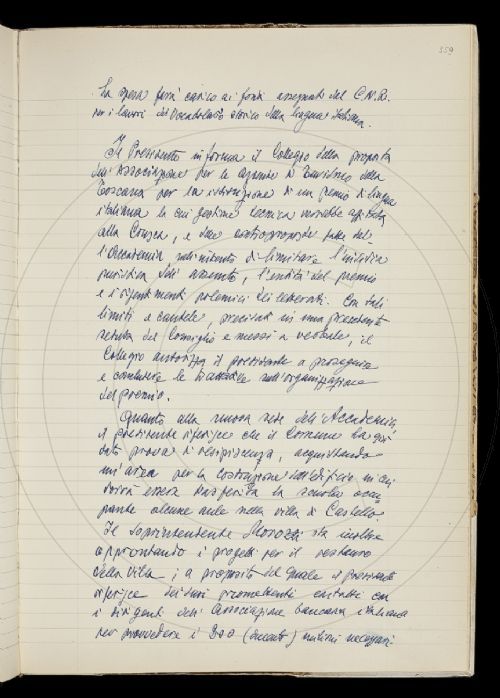 359
La spesa farà carico ai fondi assegnati dal C.N.R.
per i lavori del Vocabolario storico della lingua italiana.
Il Presidente informa il Collegio della proposta
dell'Associazione per le aziende di Turismo della
Toscana per la istituzione di un premio di lingua
italiana la cui gestione tecnica verrebbe affidata
alla Crusca, e delle controproposte fatte dal-
l'Accademia nell'intento di limitare l'iniziativa
dell'assunto, l'entità del premio
e i riferimenti polemici dei deliberati. Con tali
limiti e cautele, precisati in una precedente
seduta del Consiglio e messi a verbale, il
Collegio autorizza il presidente a proseguire
e condurre le trattative sull'organizzazione
del premio.
Quanto alla nuova sede dell'Accademia,
il presidente riferisce che il Comune ha già
dato prova di resipiscenza, acquistando
un'area per la costruzione dell'edificio in cui
dovrà essere trasferita la scuola occu
pante alcune aule nella villa di Castello.
Il soprintendente Morozzi sta inoltre
approntando i progetti per il restauro
della Villa; a proposito del quale il presidente
riferisce dei suoi promettenti contatti con
i dirigenti dell'Associazione bancaria italiana
per provvedere i 300 (trecento) milioni necessari-